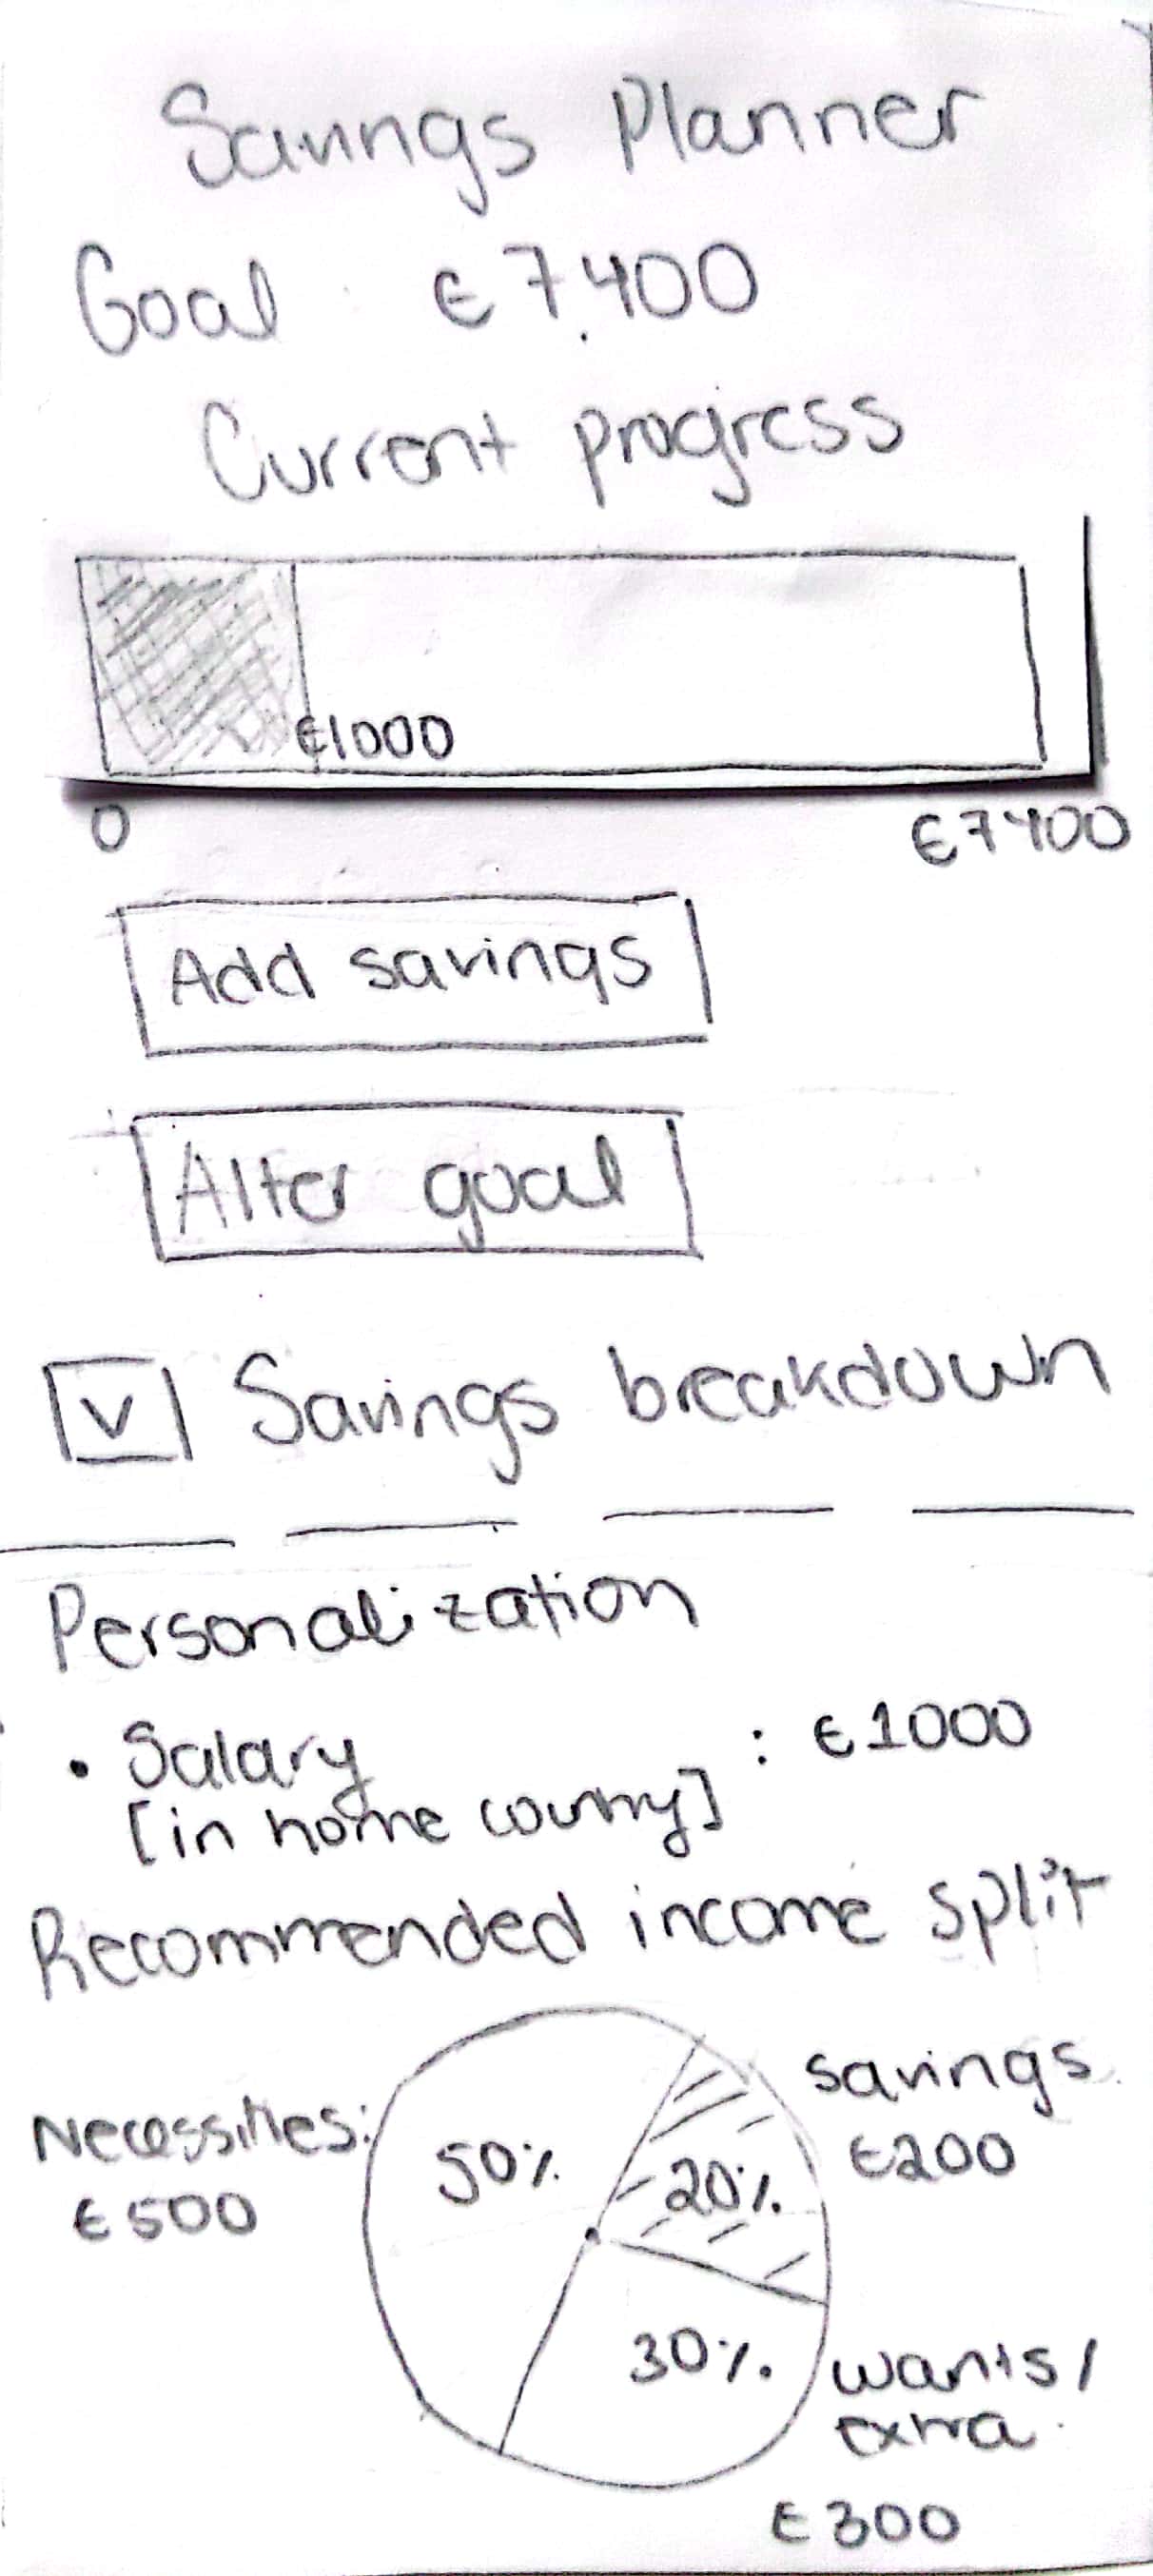 Savings Planner
Goal : € 7.400
Current progress
€1000
0 €7400
Add savings
Alter goal
V Savings breakdown
Personalization
• Salary : €1000
[in home country]
Recommended income split
Necessities: 50% savings
€500 20% €200
30% wants/
extra
€300